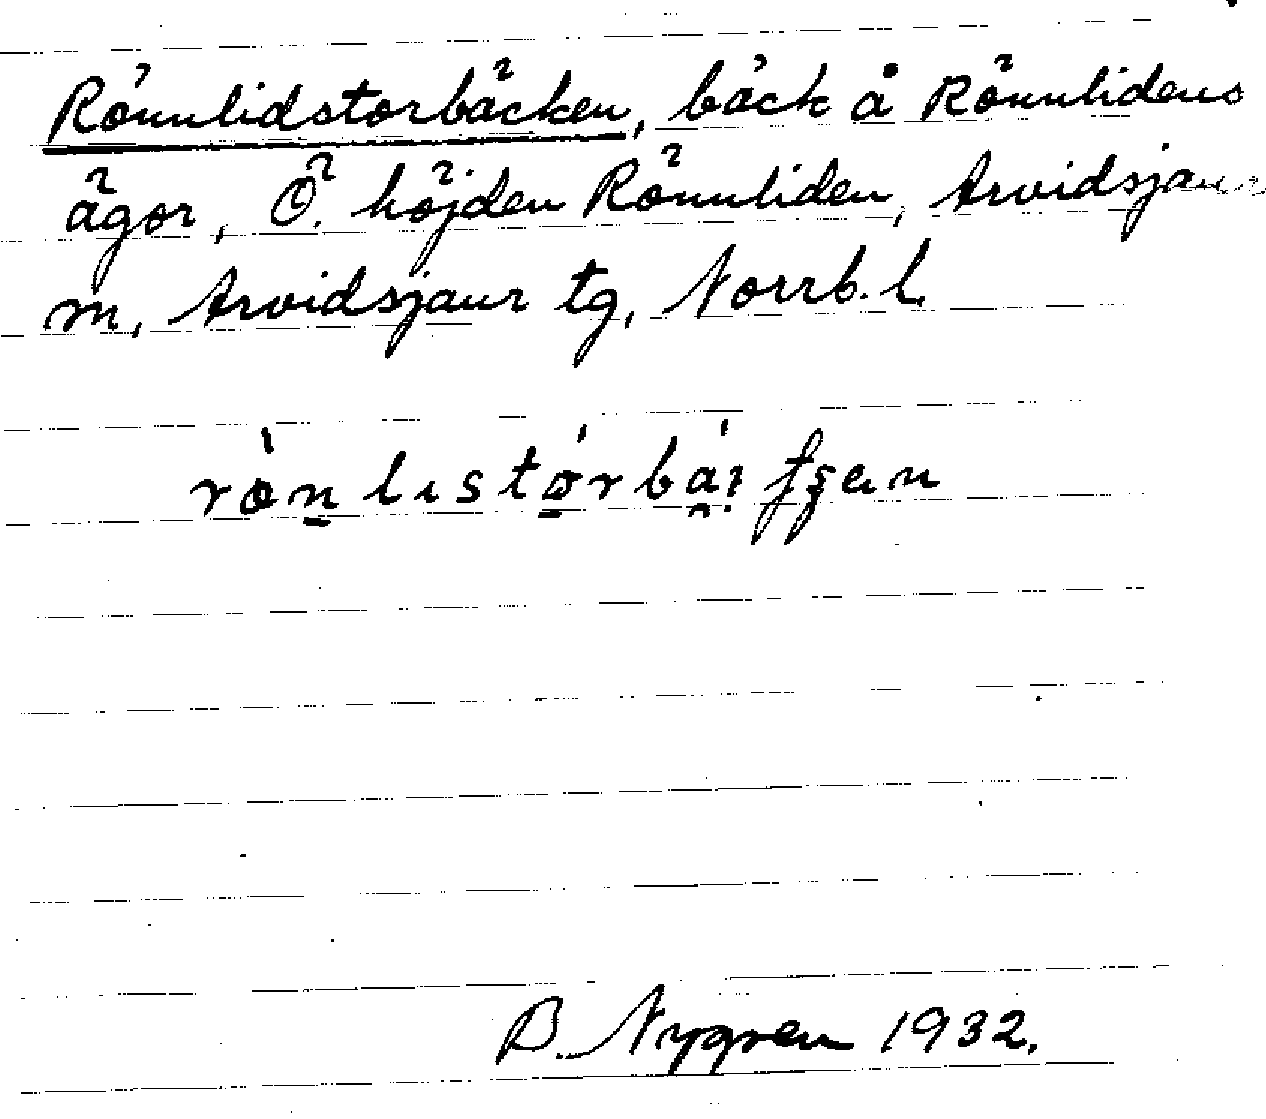 Rönnlidstorbäcken, bäck å Rönnlidens
ägor, Ö. höjden Rönnliden, Arvidsjaurs
m, Arvidsjaur tg, Norrb. l.
B. Nygren 1932.